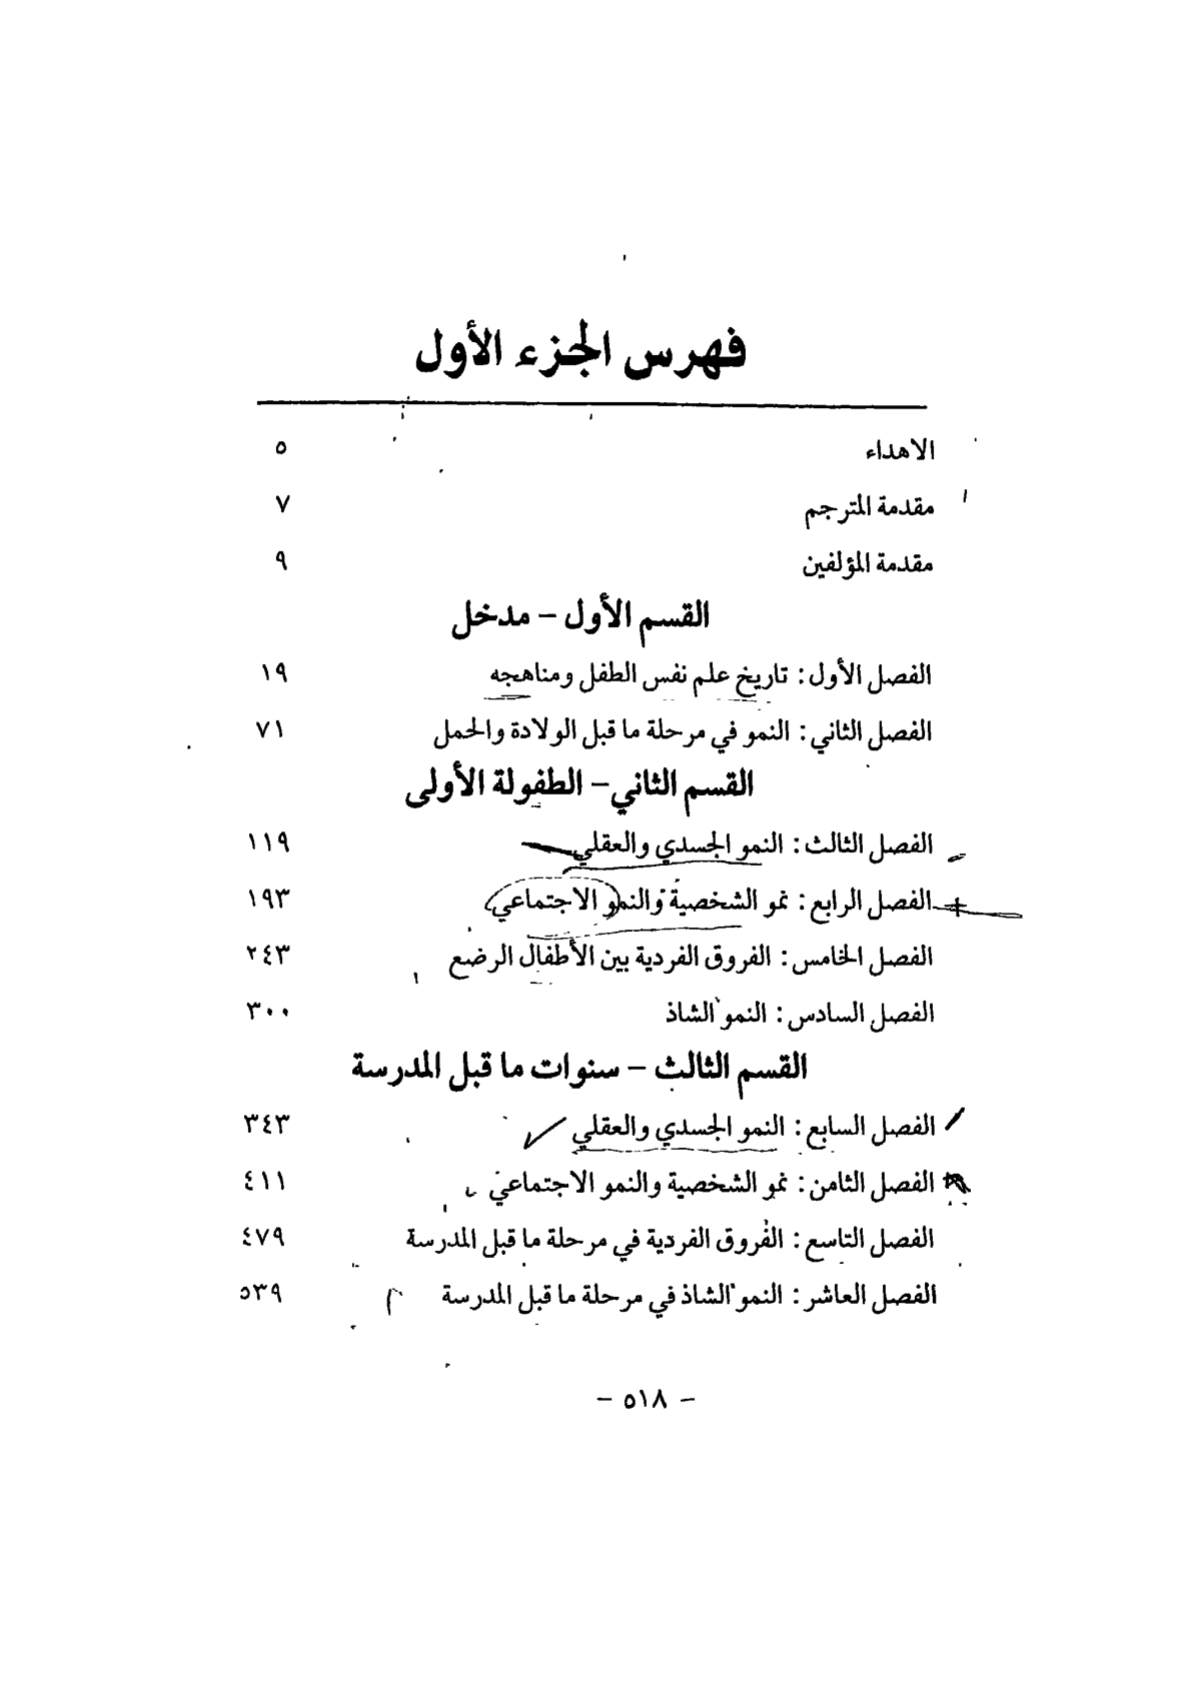 فهرس الجزء الأول
الاهداء ٥
مقدمة المترجم ٧
مقدمة المؤلفين ٩
القسم الأول – مدخل
الفصل الأول: تاريخ علم نفس الطفل ومناهجه ١٩
الفصل الثاني: النمو في مرحلة ما قبل الولادة والحمل ٧١
القسم الثاني – الطفولة الأولى
الفصل الثالث: النمو الجسدي والعقلي ١١٩
الفصل الرابع: نمو الشخصية والنمو الاجتماعي ١٩٣
الفصل الخامس: الفروق الفردية بين الأطفال الرضع ٢٤٣
الفصل السادس: النمو الشاذ ٣٠٠
القسم الثالث – سنوات ما قبل المدرسة
الفصل السابع: النمو الجسدي والعقلي ٣٤٣
الفصل الثامن: نمو الشخصية والنمو الاجتماعي ٤١١
الفصل التاسع: الفروق الفردية في مرحلة ما قبل المدرسة ٤٧٩
الفصل العاشر: النمو الشاذ في مرحلة ما قبل المدرسة ٥٣٩
– ٥١٨ –